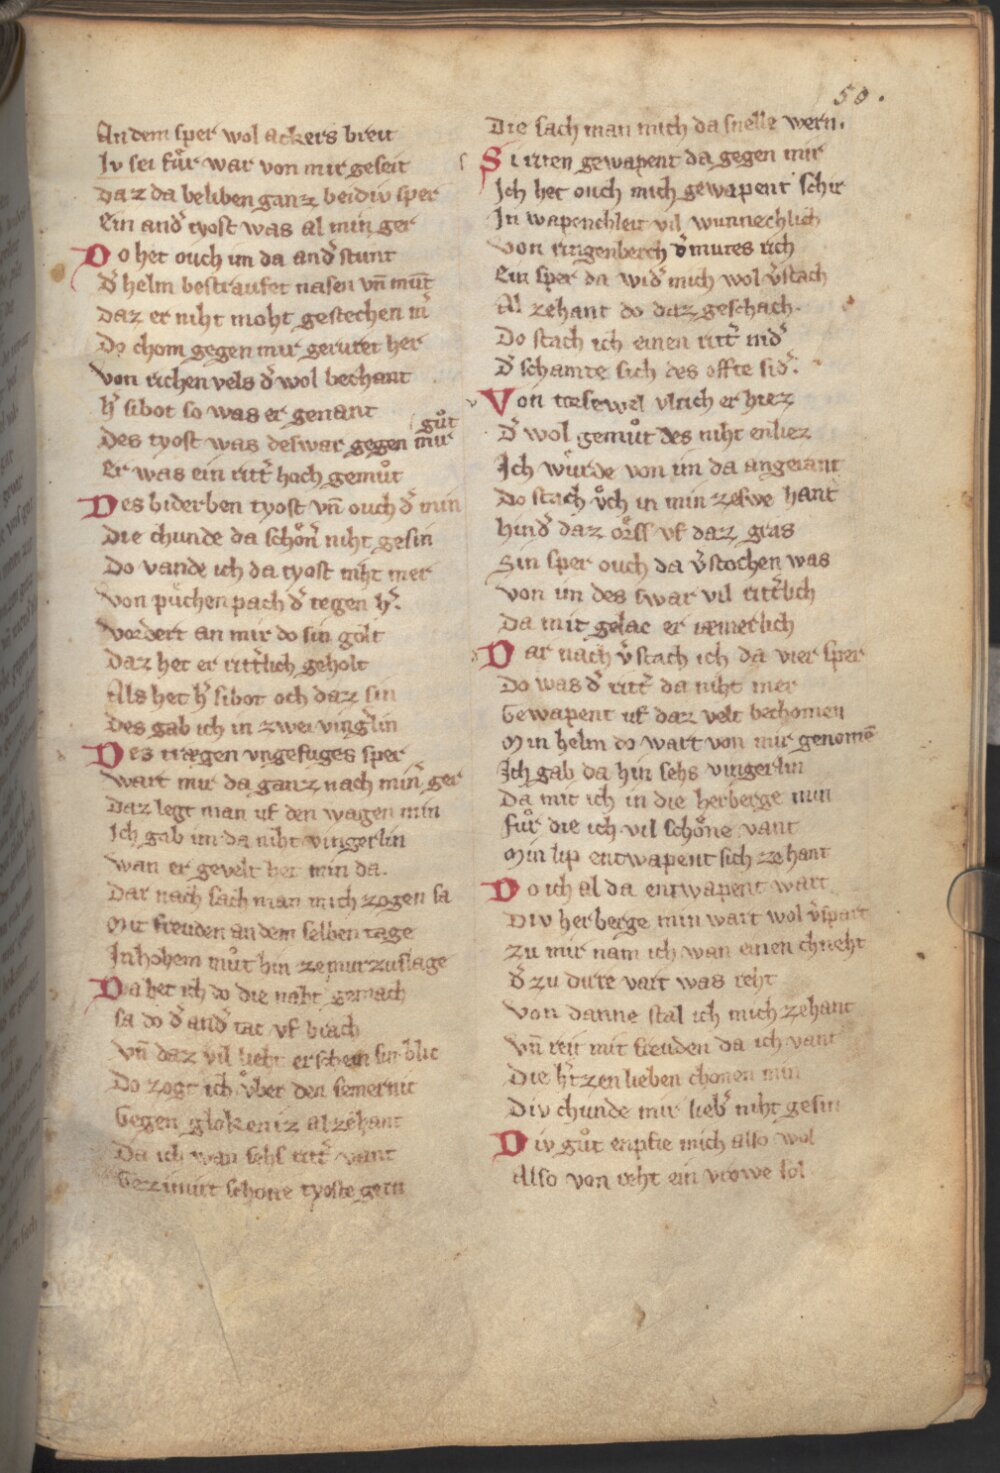 50.
An dem sper wol ackers breit
Iv sei fuͦr war von mir geseit
Daz da beliben ganz beidiv sper
Ein and͛ tyost was al min ger
Do het ouch im da and͛ stunt
D͛ helm bestraufet nasen vn̄ mūt
Daz er niht moht gestechen m͛
Do chom gegen mir gerittet her
Von richen vels d͛ wol bechant
h͛ sibot so was er genant
Des tyost was deswar gegen mir guͦt
Er was ein ritt͛ hoch gemuͦt
Des biderben tyost vn̄ ouch d͛ min
Die chunde da schoͤn͛ niht gesin
Do vande ich da tyost niht mer
Von puͤchen pach d͛ tegen h͛.
Vordert an mir do sin golt
Daz het er ritt͛lich geholt
Als het h͛ sibot och daz sin
Des gab ich in zwei ving͛lin
Des trægen vngefuges sper
Wart mir da ganz nach min͛ ger
Daz legt man uf den wagen min
Ich gab im da niht vingerlin
Wan er gevelt het min da.
Dar nach sach man mich zogen sa
Mit freuden an dem selben tage
In hohem muͦt hin ze murzuslage
Da het ich do die naht gemach
Sa do d͛ and͛ tac vf brach
Vn̄ daz vil lieht erschein sin blic
Do zogt ich vͤber den semernic
Gegen glokeniz al zehant
Da ich wan sehs ritt͛ vant
Gezimirt schone tyoste gern
Die sach man mich da snelle wern.
Si riten gewapent da gegen mir
Ich het ouch mich gewapent schir
In wapenchleit vil wunnechlich
Von ringenberch d͛ mutes rich
Ein sper da wid͛ mich wol v͛stach
Al zehant do daz geschach.
Do stach ich einen ritt͛ nid͛
D͛ schamte sich des offte sid͛.
Von tœsewel vlrich er hiez
D͛ wol gemuͦt des niht enliez
Ich wuͤrde von im da angerant
Do stach vͦch in min zeswe hant
Hind͛ daz oͤrss vf daz gras
Sin sper ouch da v͛stochen was
Von im des swar vil ritt͛lich
Da mit gelac er iæmerlich
Dar nach v͛stach ich da vier sper
Do was d͛ ritt͛ da niht mer
Gewapent uf daz velt bechomen
Min helm do wart von mir genomē
Ich gab da hin sehs vingerlin
Da mit ich in die herberge min
Fuͦr die ich vil schoͤne vant
Min lip entwapent sich ze hant
Do ich al da entwapent wart
Div herberge min wart wol v͛spart
Zu mir nam ich wan einen chneht
D͛ zu dirre vart was reht
Von danne stal ich mich zehant
Vn̄ reit mit freuden da ich vant
Die h͛tzen lieben chonen min
Div chunde mir lieb͛ niht gesin
Div guͦt enpfie mich also wol
Also von reht ein vrowe sol